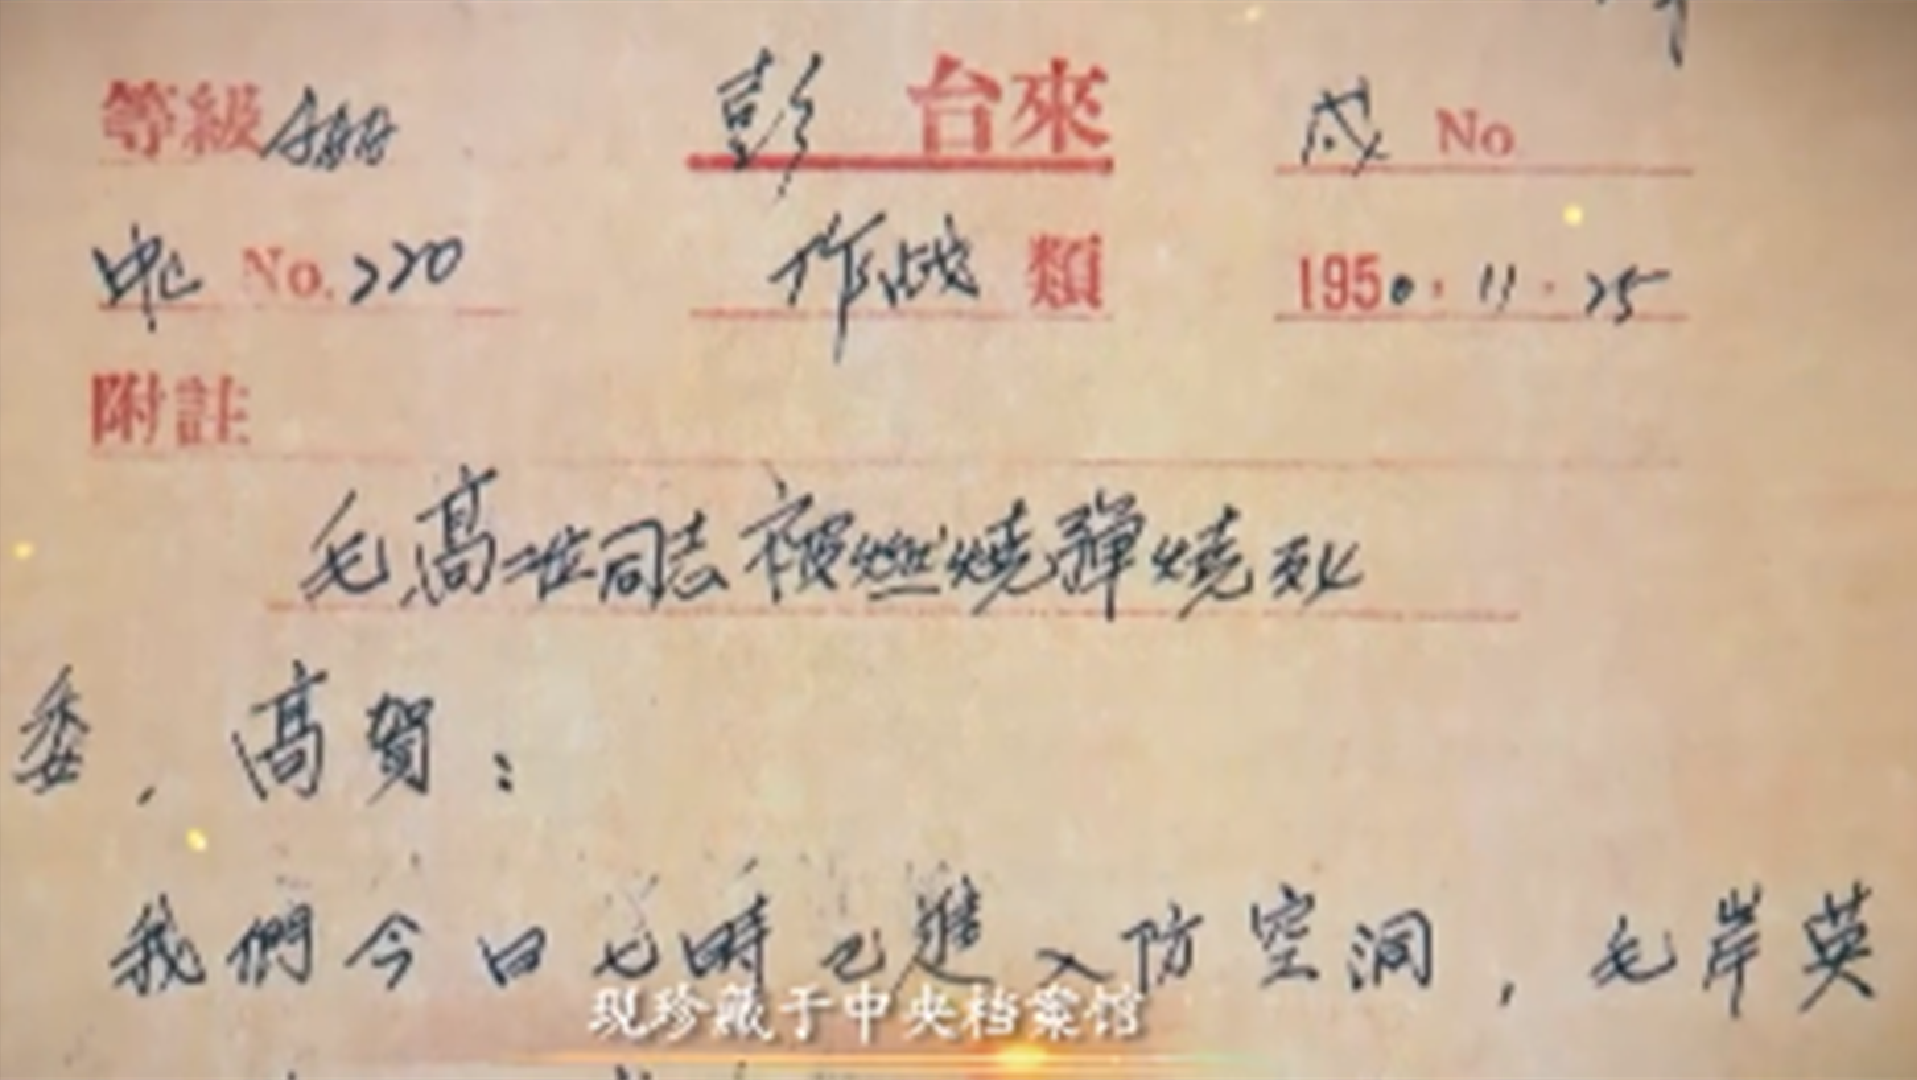 等級 彭 台來 戌 No
No. 220 作战 類 1950.11.25
附註
毛高二位同志被燃燒彈燒死
委,高賀:
我們今日七時已進入防空洞,毛岸英
现珍藏于中央档案馆